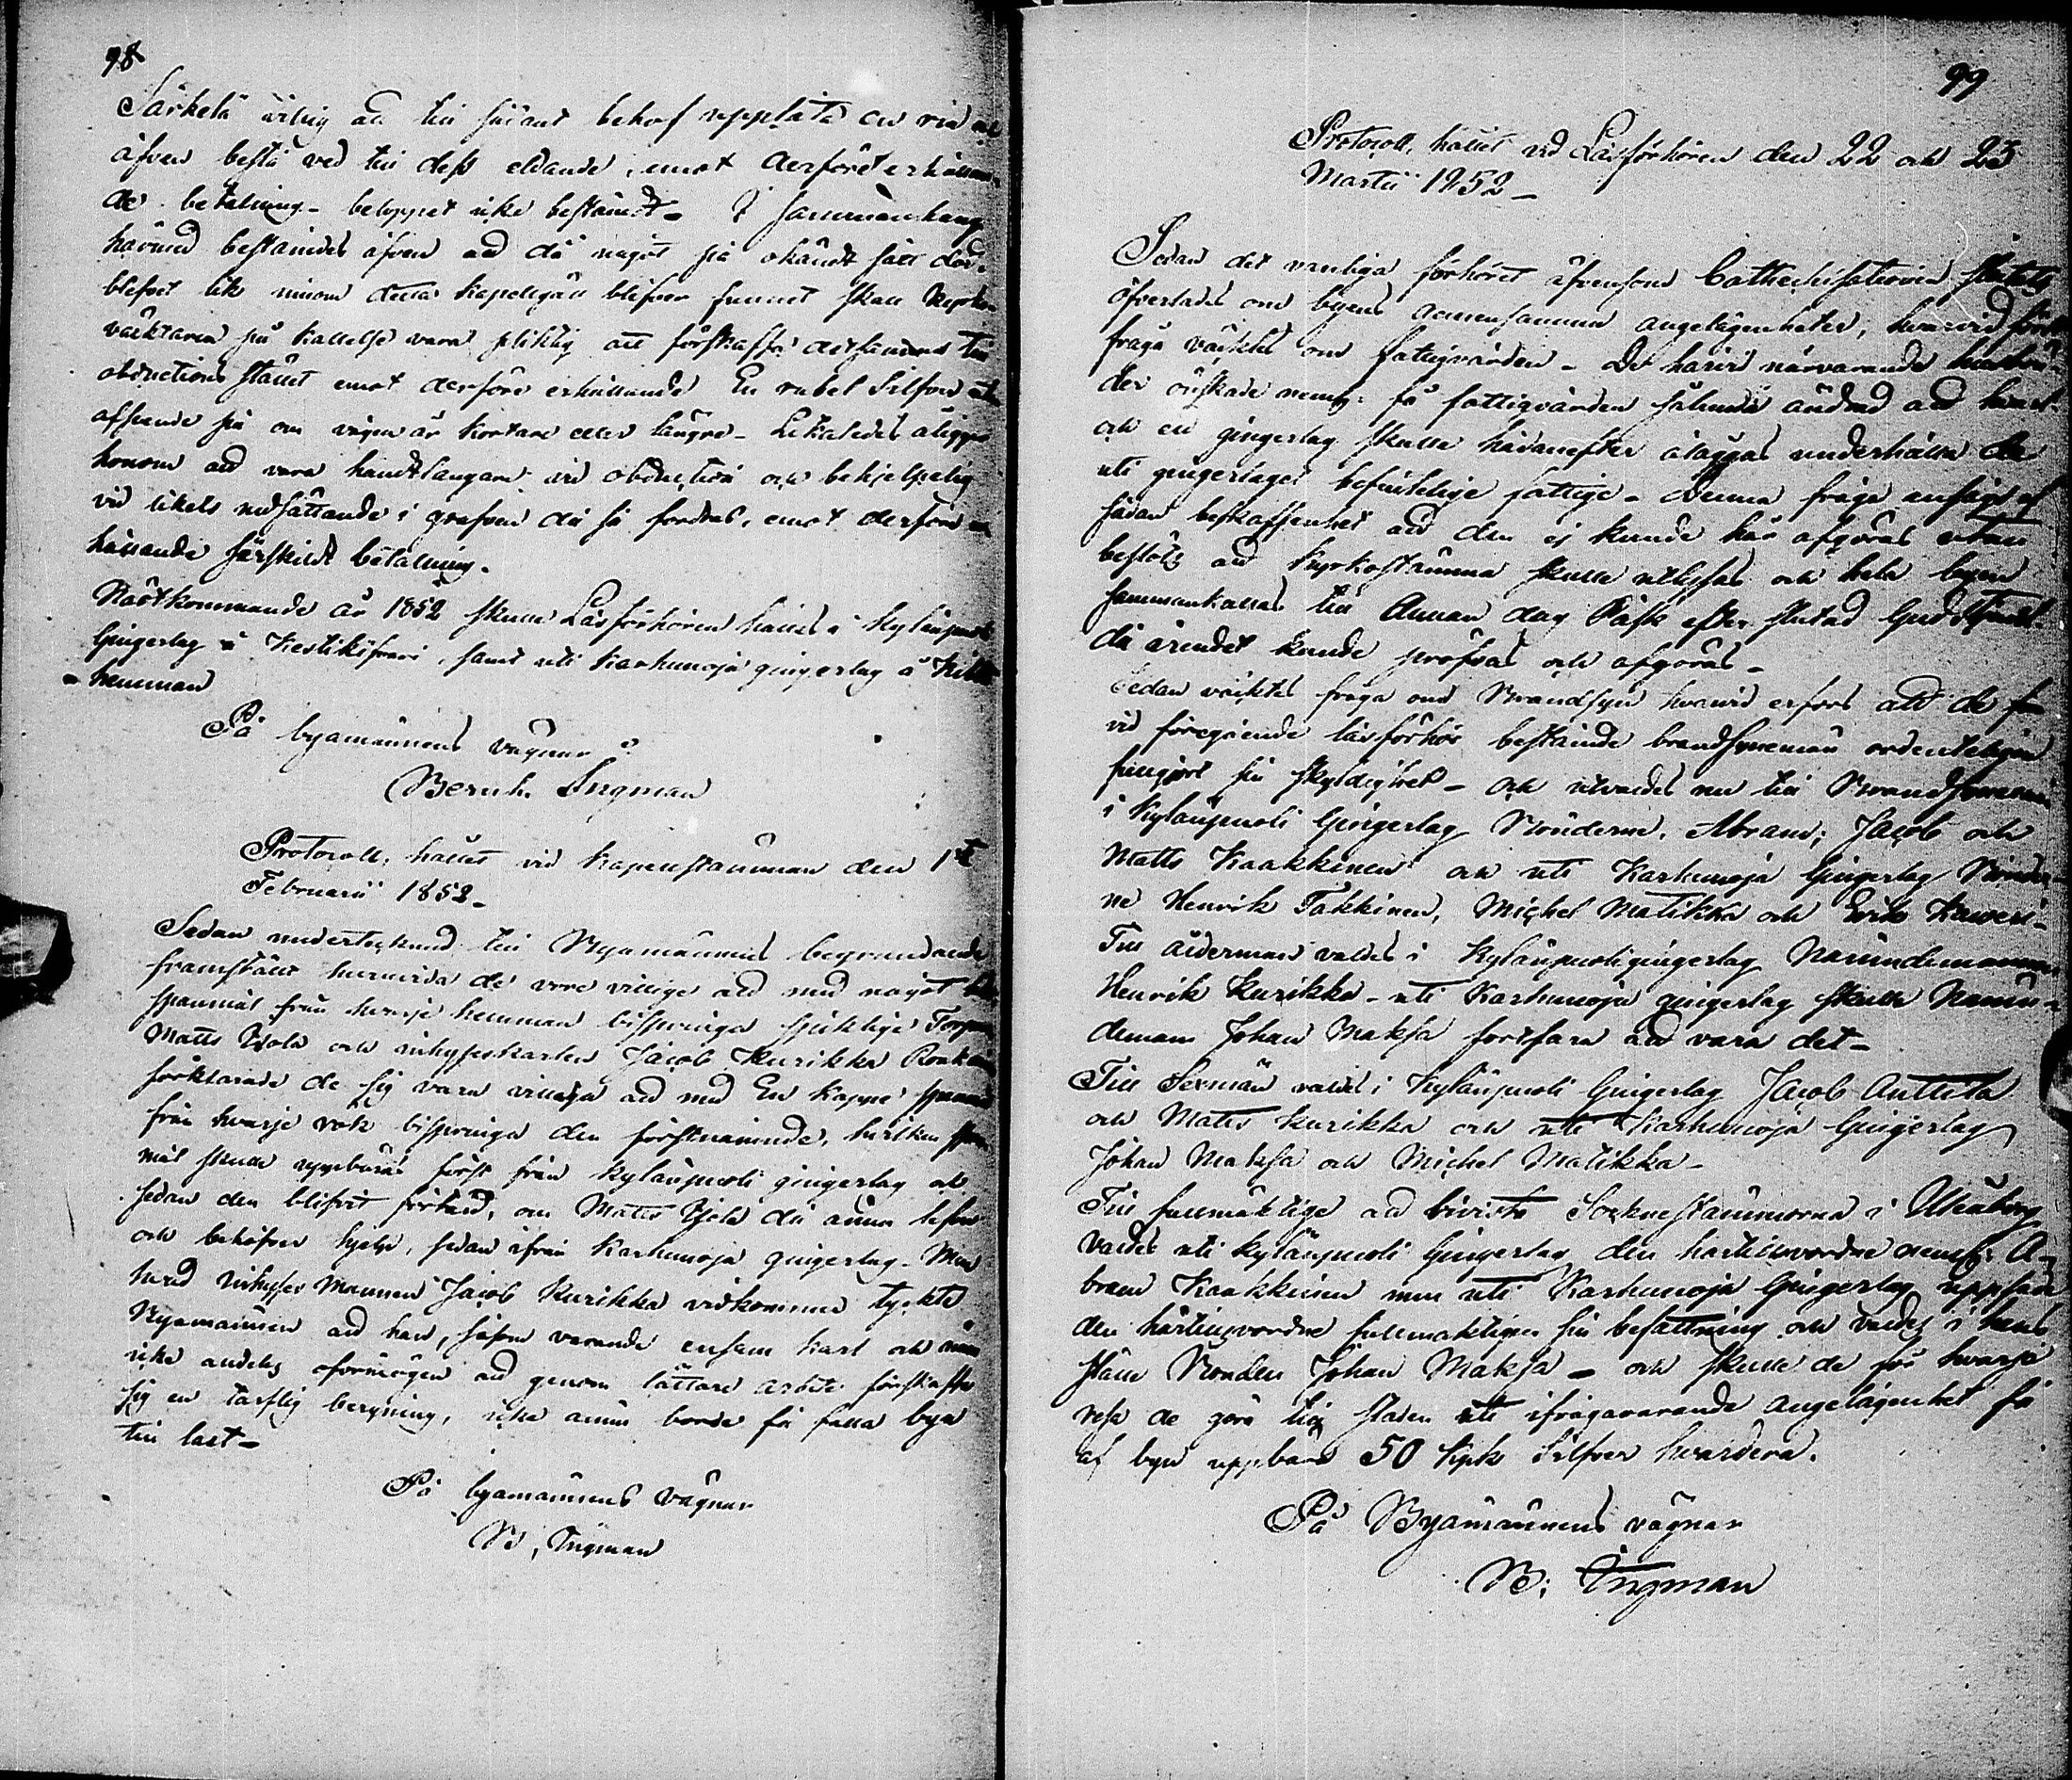 98
Särkelä villig att till sådant behof upplåta en ria
äfven bestå ved till dess eldande, emot derföre erhållan-
de betalning - beloppet icke bestämdt - I sammanhang
härmed bestämdes äfven att då något på okändt sätt död-
blefvet lik innom detta kapellgäll blifver funnet skall kyrko-
väktaren på kallelse vara pliktig att förskaffa detsamma till
obductions stället emot derföre erhållande En rubel Silfver
afseende på om vägen är kortare eller längre - Likaledes åligger
honom att vara handtlangare vid obduction och behjelpelig
vid likets nedsättande i grafven då så fordras, emot derföre er
hållande särskildt betalning.
Nästkommande år 1852 skulle Läsförhören hållas i Kylänpuoli
Gingerlag å Kestikifvari, samt uti Karhunoja gingerlag å
hemman
På byamännens vägnar
Bernh. Ingman
Protocoll, hållet vid Kapellstämman den 1
Februarii 1852-
Sedan undertecknad till Byamännens begrundande
framstält huruvida de vore villige att med något
spannmål från hvarje hemman bispringa sjuklige
Matts Yjola och inhyseskarlen Jacob Kurikka
förklarade de sig vara villiga att med En Kappe
från hvarje rök bispringa den förstnämnde, hvilken
mål skulle uppbäras först från kylänpuoli gingerlag och
sedan den blifvit förtärd, om Matts Yjola då ännu lefver
och behöfver hjelp, sedan ifrån Karhunoja gingerlag - Men
hvad inhyses Mannen Jacob Kurikka vidkommer tyckte
Byamännen att han, såsom varande ensam karl och
icke aldeles oförmögen att genom lättare arbete förskaffa
sig en tarflig bergning, icke ännu borde få falla byn
till last -
På byamännens vägnar
B, Ingman
99
Protocoll, hållet vid Läsförhören den 22 och 23
Martii 1852 -
Sedan det vanliga förhöret äfvensom Cathechisationen slutats
öfverlades om byens gemensamma angelägenheter, hvarvid först
fråga väcktes om fattigvården - De härvid närvarande
der önskade nemlig: få fattigvården sålunda ändrad att
och en gingerlag skulle hädanefter åläggas underhålla de
uti gingerlaget befintelige fattige - Denna fråga ansågs af
sådan beskaffenhet att den ej kunde här afgöras utan
beslöts att Kyrkostämma skulle utlysas och hela byen
sammankallas till Annan dag Påsk efter slutad Gudstjenst
då ärendet kunde pröfvas och afgöras -
Sedan väcktes fråga om Brandsyn hvarvid erfors att de
vid föregående läsförhör bestämde brandsynemän ordenteligen
fullgjort sin skyldighet - och utvaldes nu till Brandsynemän
i Kylänpuoli Gingerlag Bönderne, Abram, Jacob och
Matts Kaakkinen och uti Karhunoja Gingerlag Bönder-
ne Henrik Takkinen, Michel Matikka och Erik
Till ålderman valdes i Kylänpuoli gingerlag Nämndemannen
Henrik Kurikka - uti Karhunoja gingerlag skulle Nämn-
deman Johan Maksa fortfara att vara det -
Till Sexmän valdes i Kylänpuoli Gingerlag Jacob Anttila
och Matts Kurikka och uti Karhunoja Gingerlag
Johan Maksa och Michel Matikka -
Till fullmäktige att bivista Sockne stämmorna i Uleåborg
valdes uti kylänpuoli Gingerlag den härtillsvordne nemlig: A-
bram Kaakkinen men uti Karhunoja Gingerlag uppsade
den härtillsvordne fullmäktigen sin befattning och valdes i hans
ställe Bonden Johan Maksa - och skulle de för hvarje
resa de göra till staden uti ifrågavarande angelägenhet få
af byn uppbära 50 kopk Silfver hvardera.
På Byamännens vägnar
B: Ingman